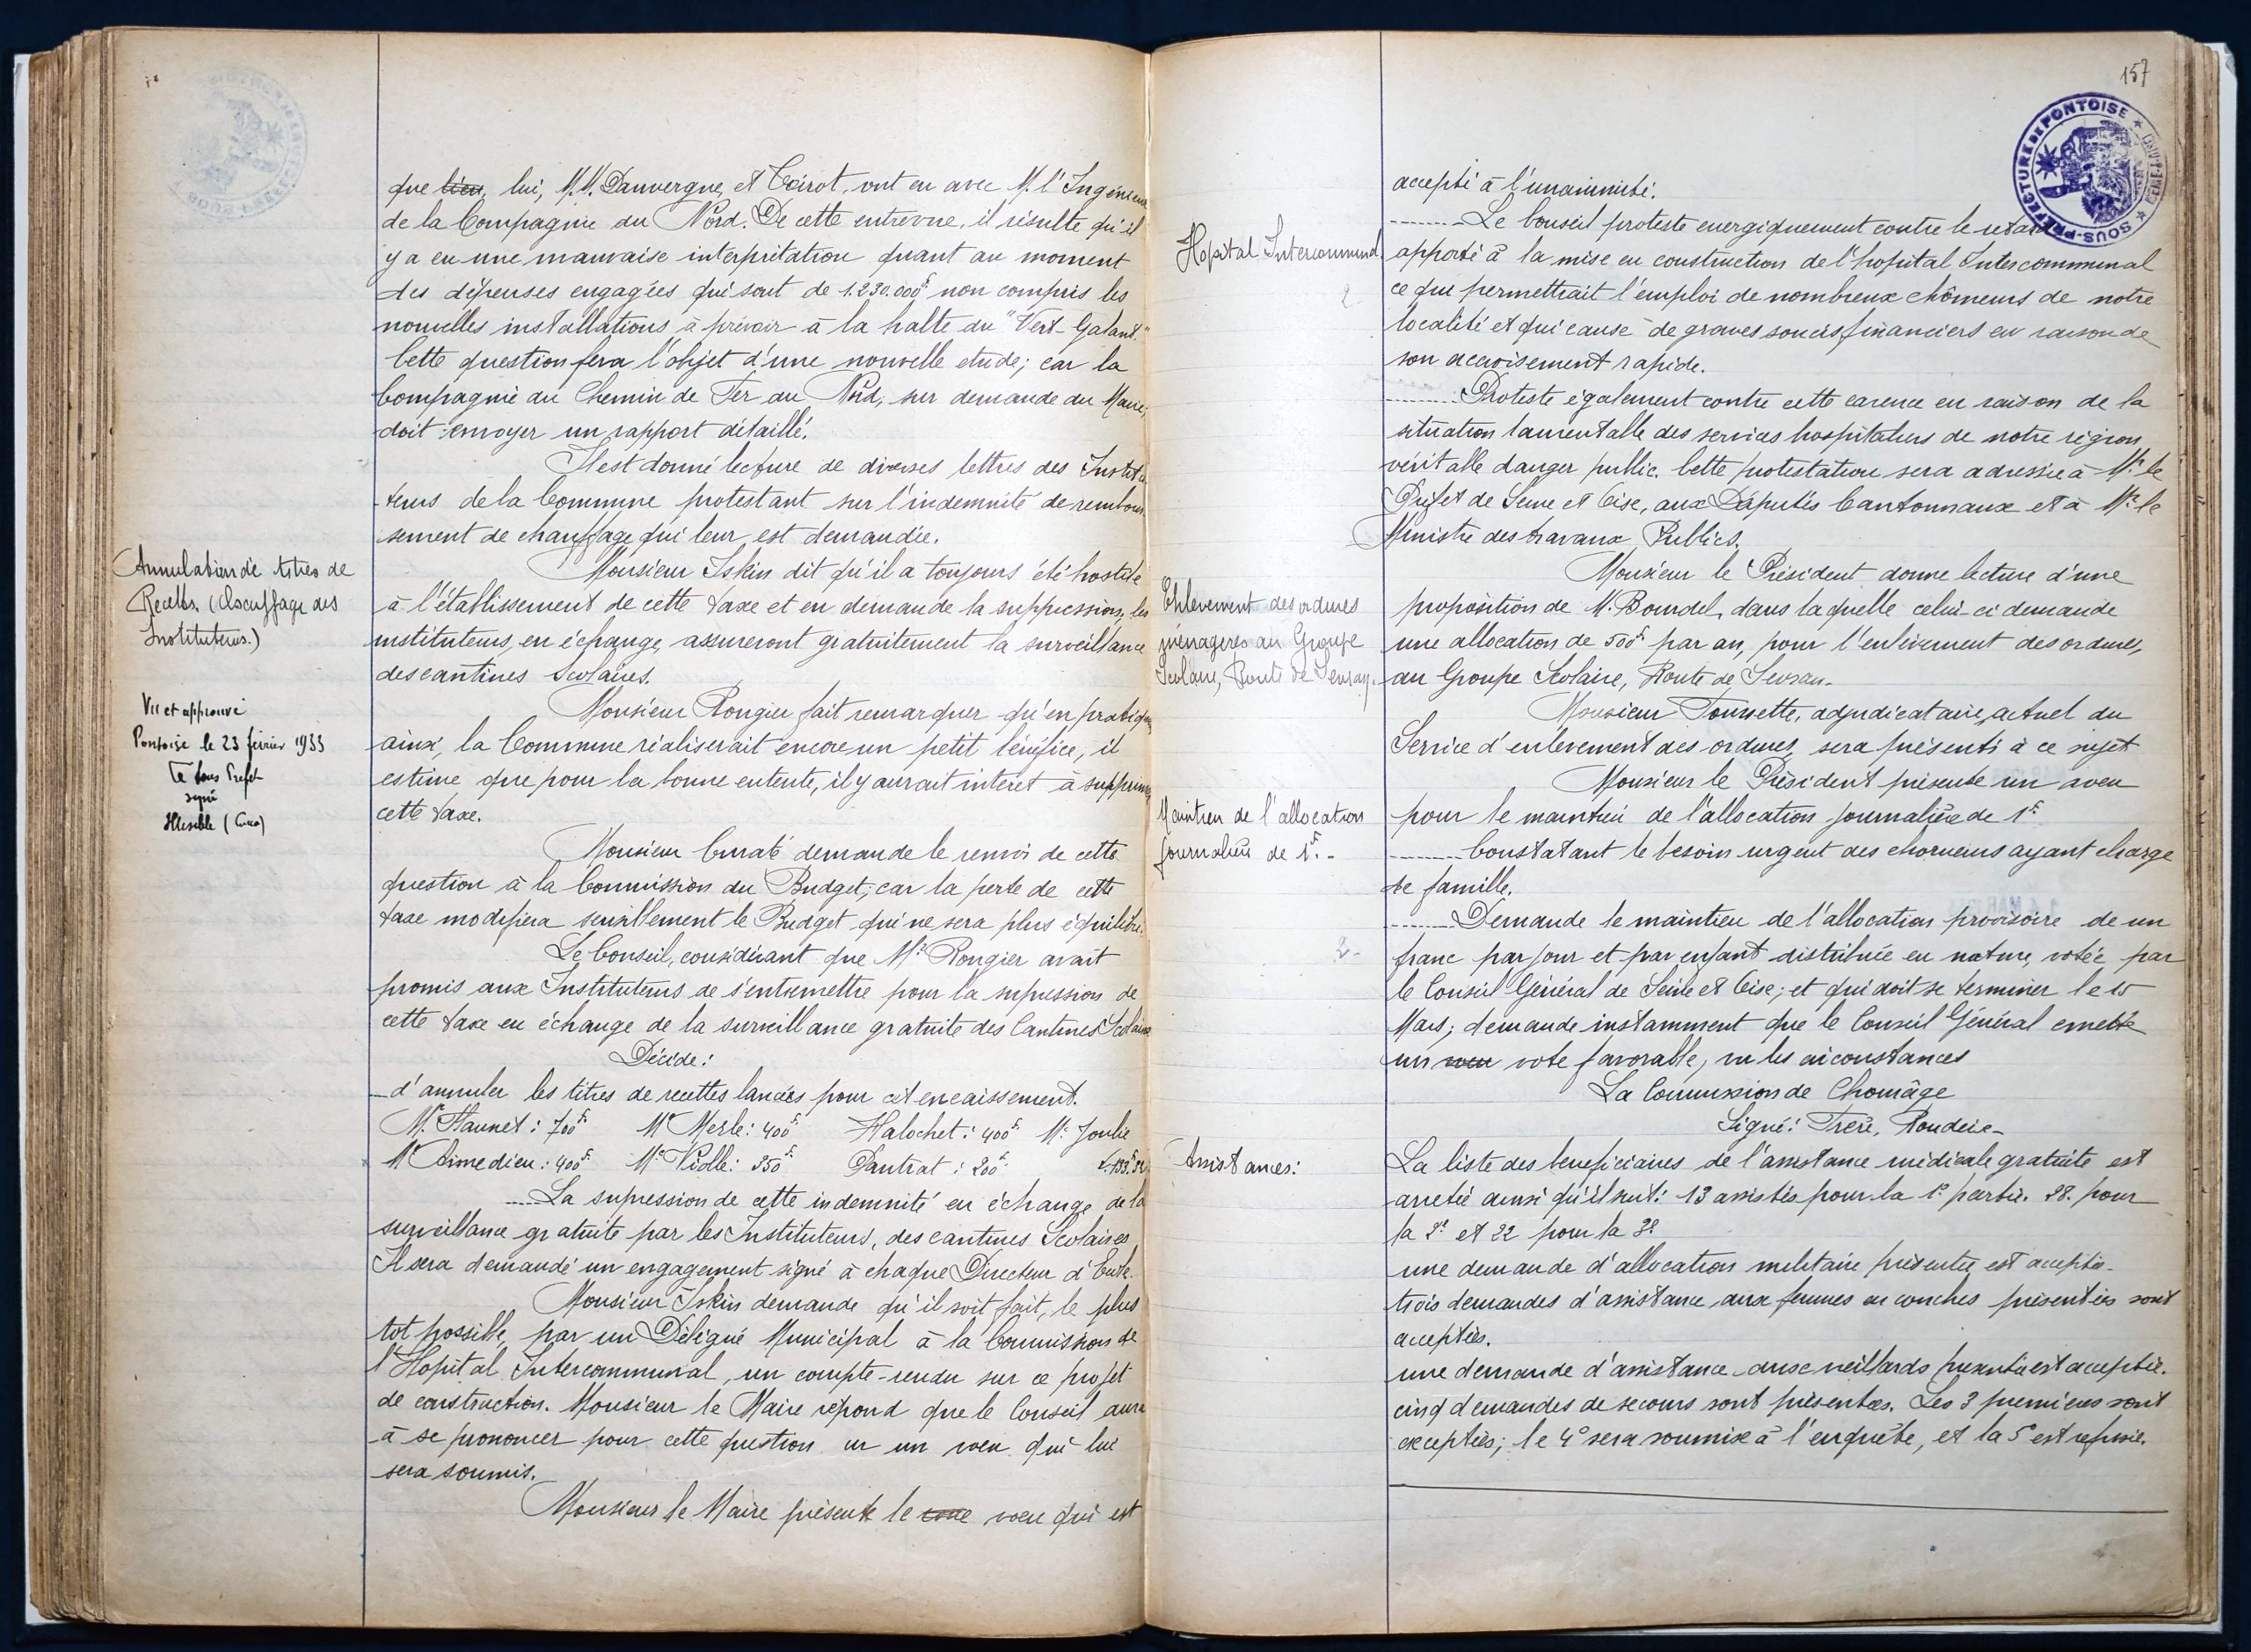 que lieu, lui, M.M. Dauvergne, et Coirot, ont eu avec M. l'Ingénieur
de la Compagnie du Nord. De cette entrevue, il résulte qu'il
y a eu une mauvaise interprétation quant au moment
des dépenses engagées qui sont de 1.230.000f non compris les
nouvelles installations à prévoir à la halte du "Vert-Galant."
Cette question fera l'objet d'une nouvelle etude; car la
Compagnie du Chemin de Fer du Nord, sur demande du Maire,
doit envoyer un rapport détaillé.
Il est donné lecture de diverses lettres des Institu
-teurs de la Commune protestant sur l'indemnité de rembour
sement de chauffage qui leur est demandée.
Annulation de titres de
Recettes (Chauffage des
Instituteurs.)
Monsieur Iskin dit qu'il a toujours été hostile
à l'établissement de cette taxe et en demande la suppression, les
instituteurs, en échange, assureront gratuitement la surveillance
des cantines Scolaires.
Vu et approuvé
Pontoise le 23 février 1933
Le Sous Préfet
signé
Monsieur Rougier fait remarquer qu'en pratiquant
ainsi, la Commune réaliserait encore un petit bénéfice, il
estime que pour la bonne entente, il y aurait intérêt à supprimer
cette taxe.
Monsieur Curaté demande le renvoi de cette
question à la Commission du Budget; car la perte de cette
taxe modifiera sensiblement le Budget qui ne sera plus équilibré.
Le Conseil, considérant que Mr Rougier avait
promis aux Instituteurs de s'entremettre pour la supression de
cette taxe en échange de la surveillance gratuite des Cantines Scolaires
Décide:
d'annuler les titres de recettes lancées pour cet encaissement.
Mr Haunet: 700f Mr Merle: 400f Halochet: 400f Mr Joulie
Mr Aimedieu: 400f Mr Violle: 350f Pautrat: 200f
La supression de cette indemnité en échange de la
surveillance gratuite par les Instituteurs, des cantines Scolaires
Il sera demandé un engagement signé à chaque Directeur d'Ecole.
Monsieur Iskin demande qu'il soit fait, le plus
tot possible, par un Délégué Municipal à la Commission de
l'Hopital Intercommunal, un compte-rendu sur ce projet
de construction. Monsieur le Maire répond que le Conseil aura
à se prononcer pour cette question sur un voeu qui lui
sera soumis.
Monsieur le Maire présente le voeu qui est
157
SOUS-PRÉFECTURE DE PONTOISE
accepté à l'unanimité.
Hopital Intercommunal
Le Conseil proteste energiquement contre le retard
apporté à la mise en construction de l'hopital Intercommunal
ce qui permettrait l'emploi de nombreux chômeurs de notre
localité et qui cause de graves soucis financiers en raison de
son accroisement rapide.
Proteste également contre cette carence en raison de la
situation lamentable des services hospitaliers de notre région,
véritable danger public. Cette protestation sera adressée à Mr le
Préfet de Seine et Oise, aux Députés Cantonnaux et à Mr le
Ministre des travaux Publics.
Enlèvement des ordures
ménagères au Groupe
Scolaire, Route de Sevran.
Monsieur le Président donne lecture d'une
proposition de M. Bourdel, dans laquelle celui-ci demande
une allocation de 500f par an, pour l'enlèvement des ordures,
au Groupe Scolaire, Route de Sevran.
Monsieur Toussette, adjudicataire actuel du
Service d'enlevement des ordures, sera présenti à ce sujet
Maintien de l'allocation
journalière de 1f.-
Monsieur le Président présente un voeu
pour le maintien de l'allocation journalière de 1f
Constatant le besoin urgent des chomeurs ayant charge
de famille.
Demande le maintien de l'allocation provisoire de un
franc par jour et par enfant distribuée en nature, votée par
le Conseil Général de Seine et Oise; et qui doit se terminer le 15
Mars; demande instamment que le Conseil Général emette
un voeu vote favorable, vu les circonstances
La Commission de Chomâge
Signé: Frère, Roudeix-
Assistances:
La liste des beneficiaires de l'assistance médicale gratuite est
arretée ainsi qu'il suit: 13 assistés pour la 1e partie. 28. pour
la 2e et 22 pour la 3e
une demande d'allocation militaire présentée est acceptée.
trois demandes d'assistance aux femmes en couches présentées sont
acceptées.
une demande d'assistance aux vieillards présentée est acceptée.
cinq demandes de secours sont présentées. Les 3 premières sont
exceptées; le 4e sera soumise à l'enquête, et la 5e est refusée.